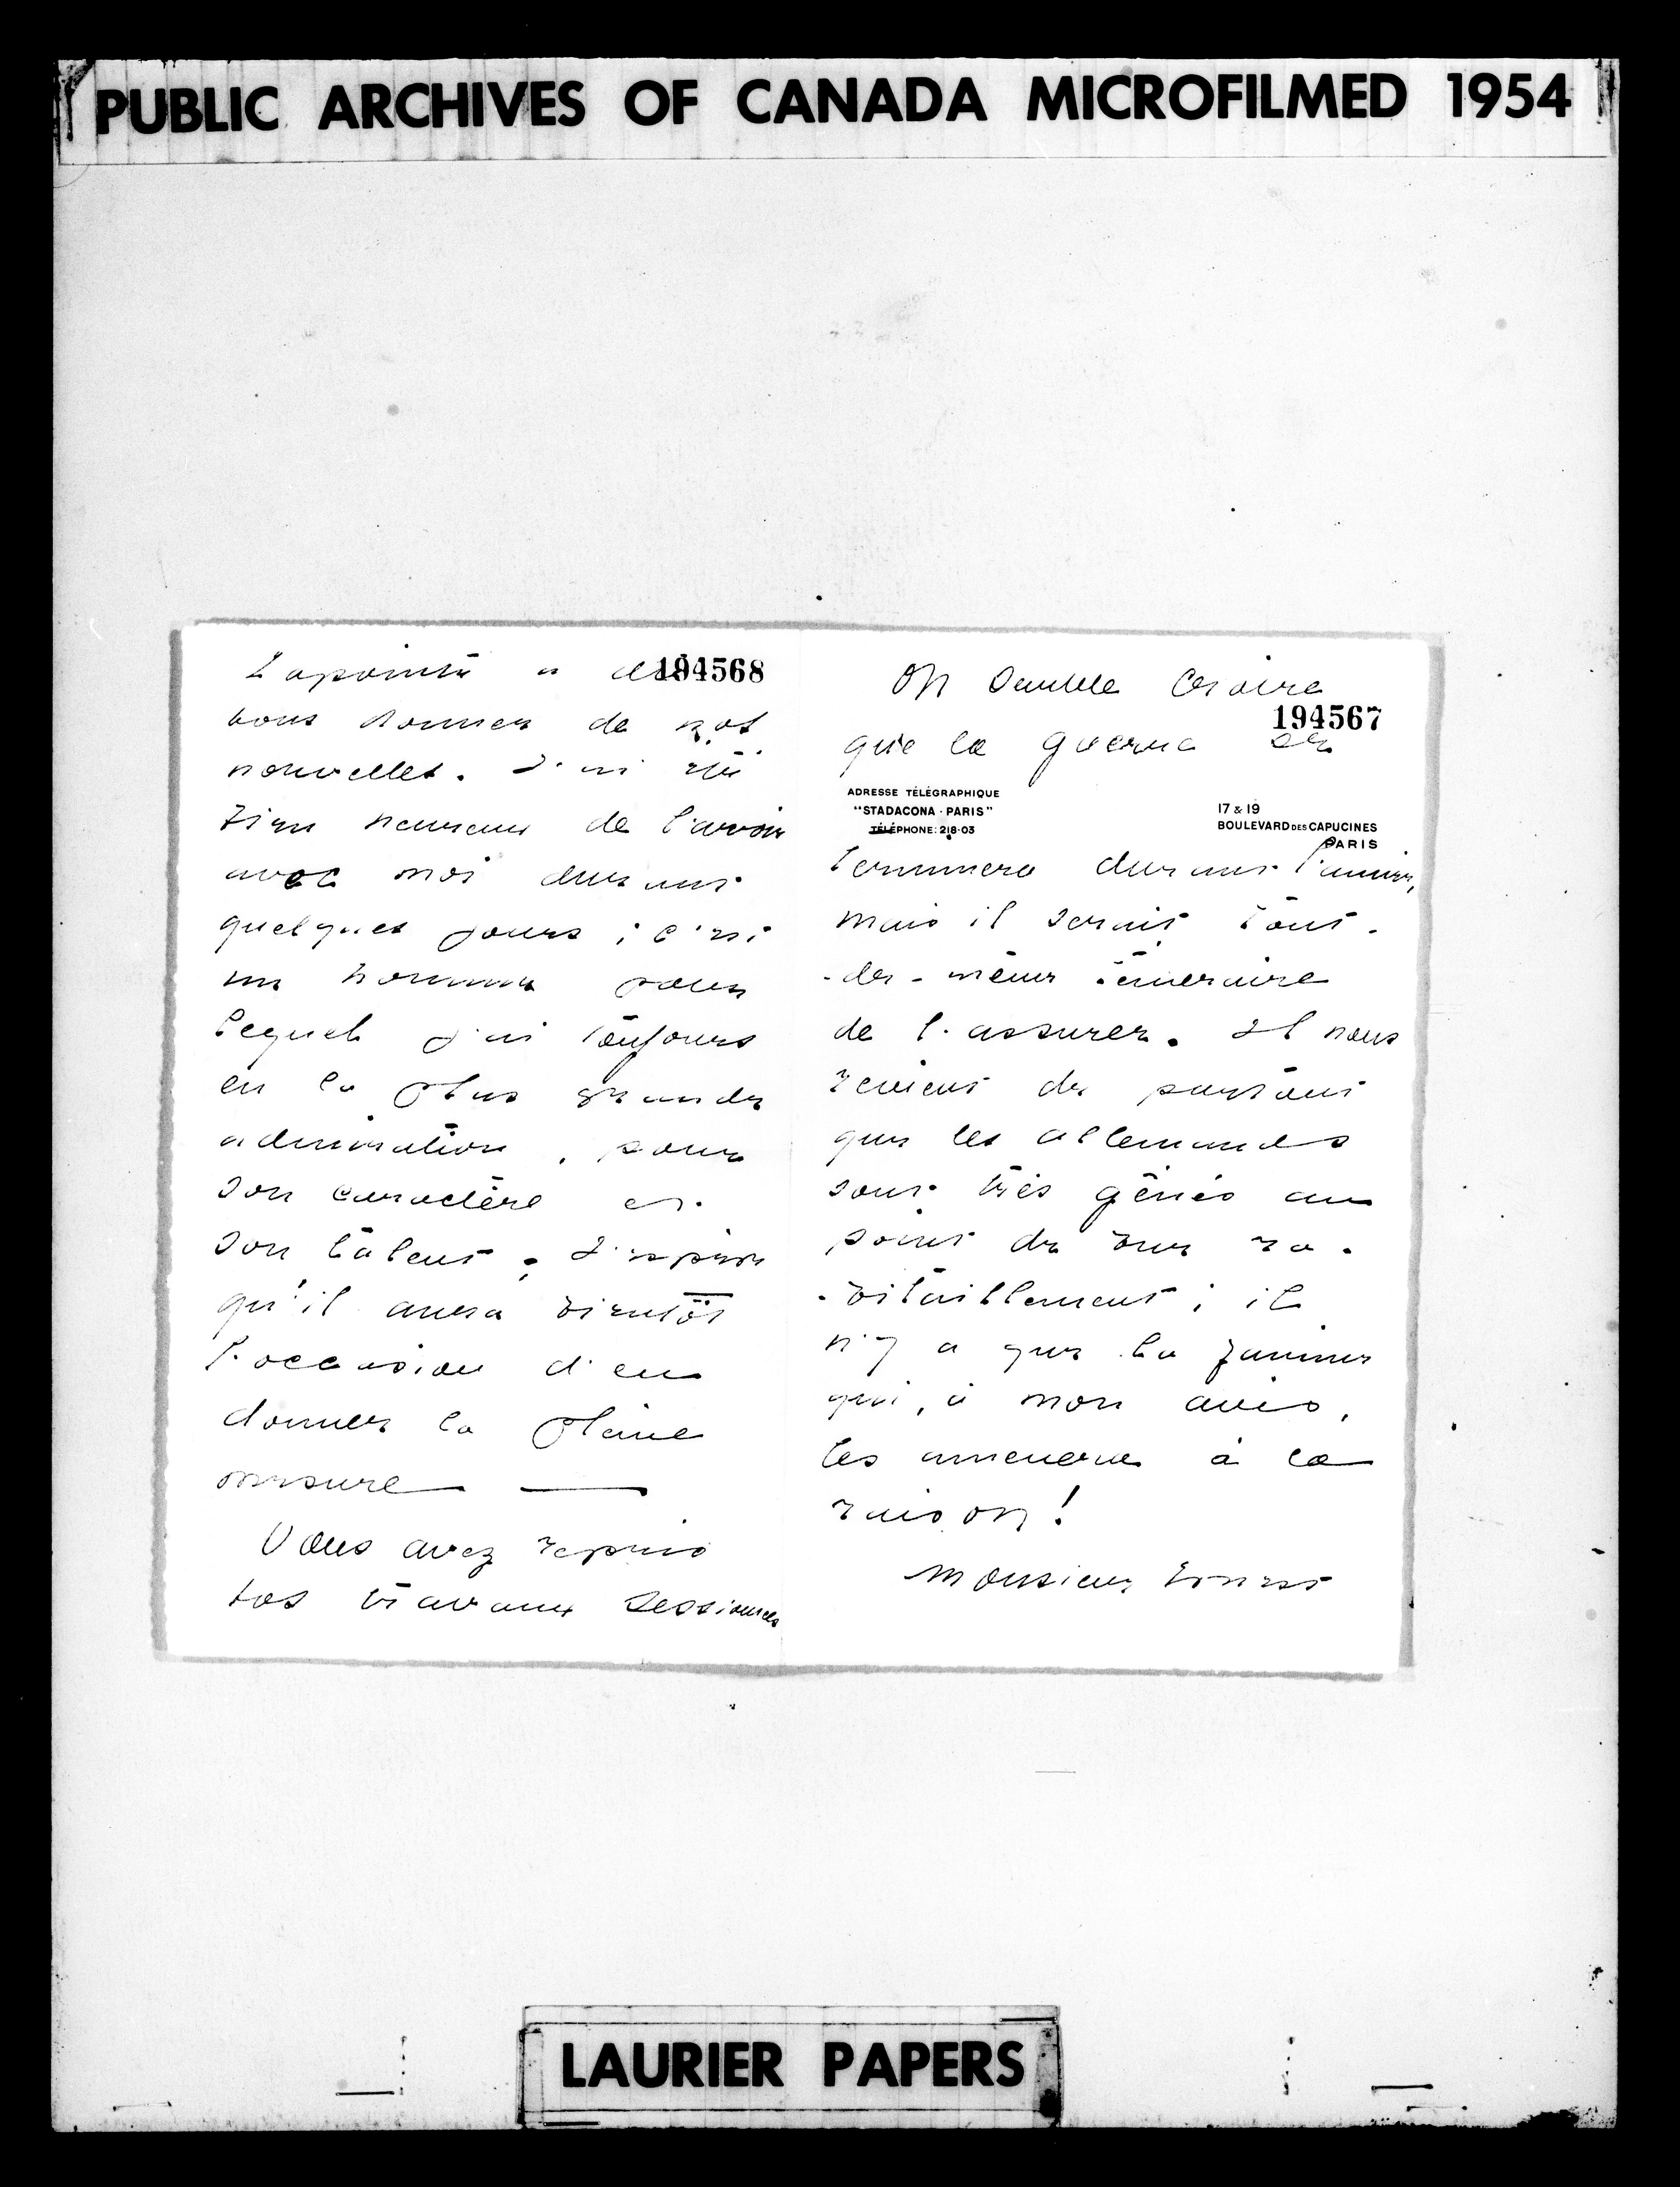 PUBLIC ARCHIVES OF CANADA MICROFILMED 1954
On semble croire
194567
que la guerre se
ADRESSE TÉLÉGRAPHIQUE
"STADACONA - PARIS"
TÉLÉPHONE: 218-03
17 & 19
BOULEVARD DES CAPUCINES
PARIS
terminera durant l'année,
mais il serait tout-
-de-même téméraire
de l'assurer. Il nous
revient de partout
que les allemands
sont très gênés au
point de vue ra-
-vitaillement ; il
n'y a que la famine
qui, à mon avis,
les amenera à la
raison !
Monsieur Ernest
Lapointe a dû
194568
vous donner de nos
nouvelles. J'ai été
bien heureux de l'avoir
avec moi durant
quelques jours ; c'est
un homme pour
lequel j'ai toujours
eu la plus grande
admiration, pour
son caractère et
son talent ; J'espère
qu'il aura bientôt
l'occasion d'en
donner la pleine
mesure —
Vous avez repris
vos travaux sessionels
LAURIER PAPERS